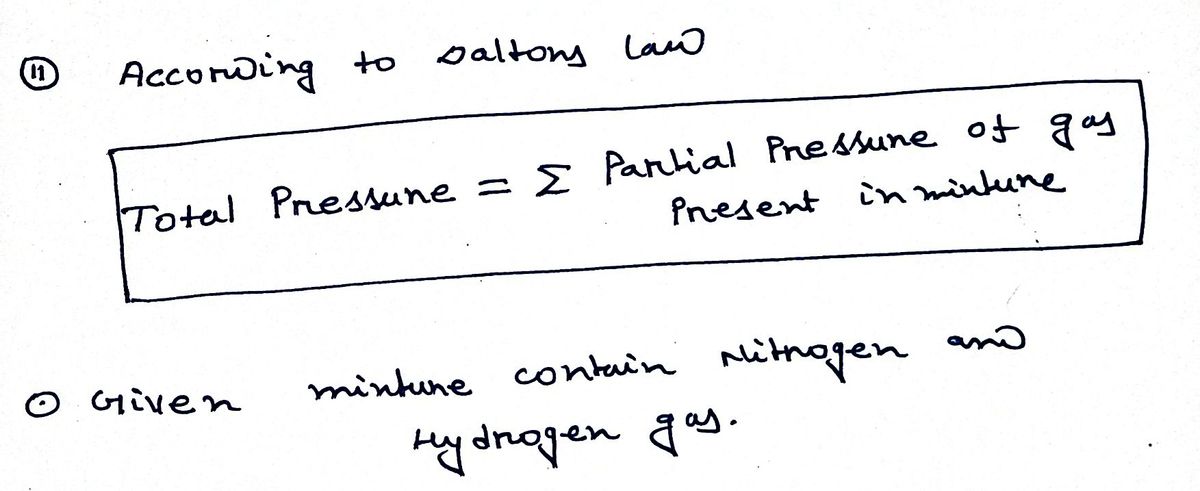 11 According to Daltons law
Total Pressure = Σ Partial Pressure of gas
Present in mixture
⊙ Given mixture contain Nitrogen and
Hydrogen gas.